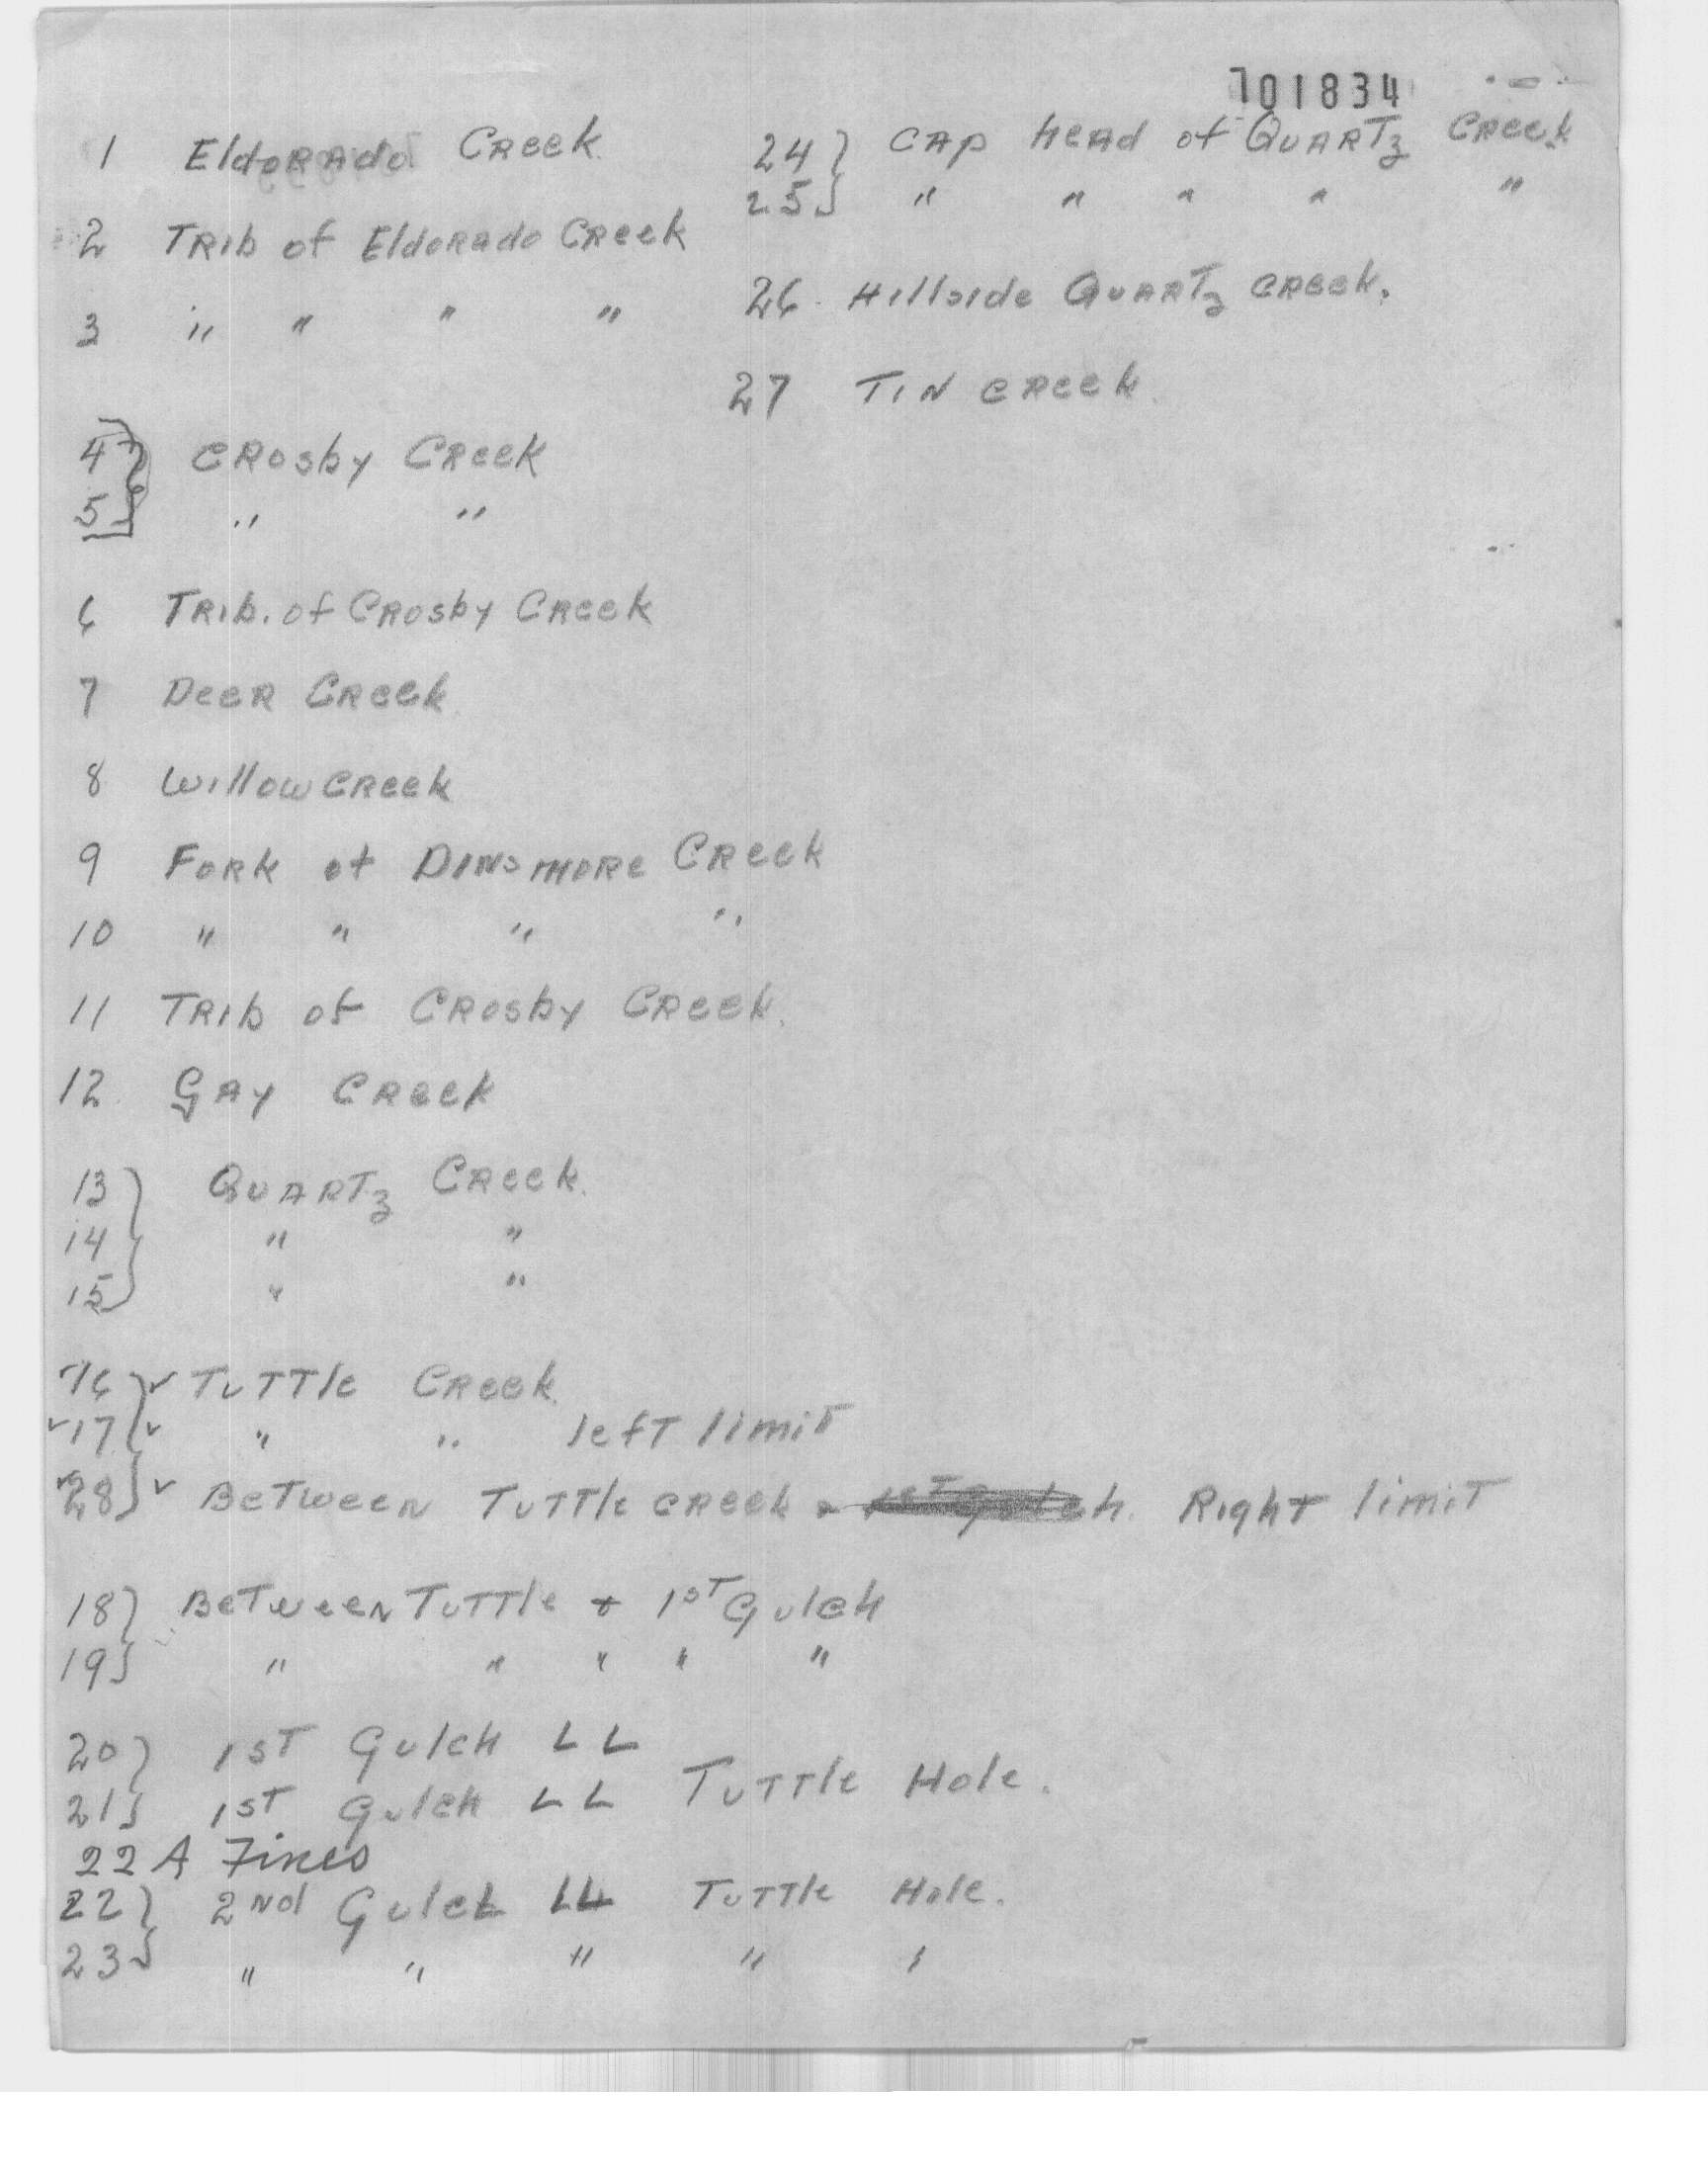 701834
1 Eldorado Creek
2 Trib of Eldorado Creek
3 " " " "
4} Crosby Creek
5} " "
6 Trib. of Crosby Creek
7 Deer Creek
8 Willow Creek
9 Fork of Dinsmore Creek
10 " " " "
11 Trib of Crosby Creek.
12 Gay Creek
13} Quartz Creek.
14} " "
15} " "
16} ✓ Tuttle Creek.
✓17} ✓ " " left limit
✓28} ✓ Between Tuttle Creek & 1st Gulch. Right limit
18} Between Tuttle & 1st Gulch
19} " " " " "
20} 1st Gulch LL
21} 1st Gulch LL Tuttle Hole.
22 A Fines
22} 2nd Gulch LL Tuttle Hole.
23} " " " " "
24} Cap head of Quartz Creek
25} " " " " "
26. Hillside Quartz Creek.
27 Tin Creek.